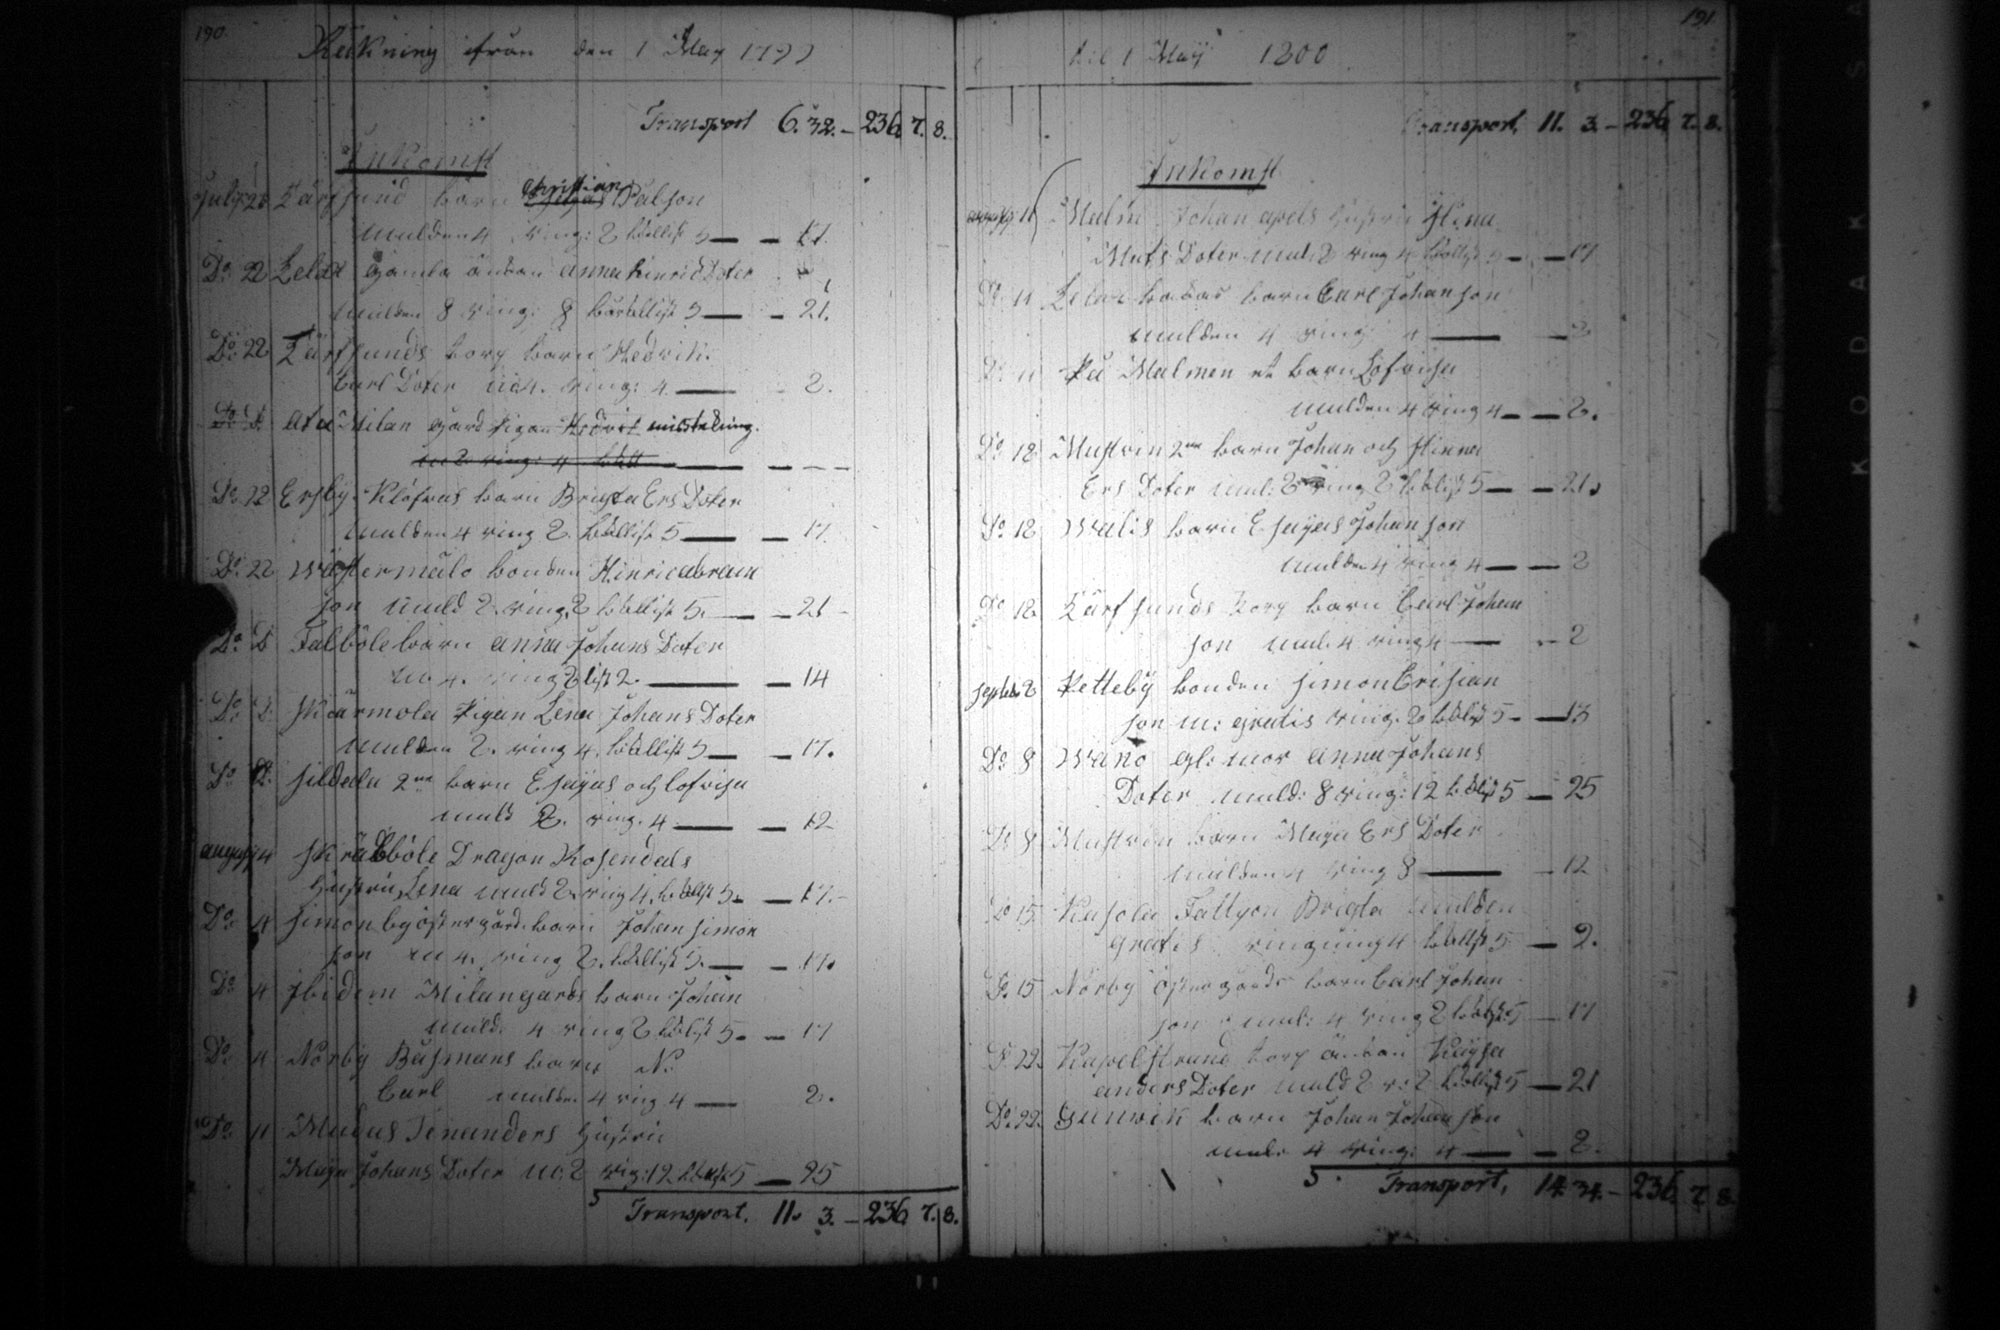 190.
Räkning ifrån den 1 May 1799
Transport 6. 32. – 236 7. 8.
Inkomst
July 21 Lärfsund barn Christian Pålson
mulden 4 ring: 2 bållist 5 — — 17.
Do: 22 gamla änkan anna hinricDoter
mulden 8 ring: 8 bårbållist 5 — – 21.
Do: 22 Lärfsunds torp barn Hedvik.
Carl Doter m 4. ring: 4. — 2.
Do D ata Milan gård pigan Hedvik misstakning.
m 2. ring: 4 båll — — — —
Do 22 Ersby Klåfvas barn Brigta Ers Doter
mulden 4 ring 2. bållist 5 — — 17.
Do: 22 Wästermålo bonden Hinric abram
son muld 2. ring. 2 bållist 5. — – 21 –
Do. D Falböle barn anna Johans Doter
m 4. ring 2 list 2. — — 14
Do: D: Skärmola Pigan Lena Johans Doter
mulden 2. ring 4. bållist 5 — — 17.
Do D. Sildala 2ne barn Esajas och lofvisa
muld 2. ring. 4 — — 12
august 4 Skräbböle Dragon Rosendals
hustru Lena muld 2. ring 4. bållist 5. — 17. –
Do: 4 Simonby östergård barn Johan Simon
son m 4. ring 2. bållist 5. — – 17.
Do 4 Ibidem Milangards barn Johan
muld: 4 ring 2 bålist 5 – — 17
Do: 4 Nårby Båsmans barn N:
Carl mulden 4 ring 4 — 2.
Do: 11 Madas Tenanders hustru
Maja Johans Doter m: 2 rig: 12 bålist 5 — 25
5 Transport. 11. 3. – 236 7. 8.
191
til 1 May 1800
Transport, 11. 3. – 236 7. 8.
Inkomst
august 11 Malm Johan apels hustru Stina
Mats Doter mul: 2 ring 4 bållist 5 – — 17
Do 11 barn Carl Johan son
mulden 4 ring 4 — — 2
Do 11 På Malmen et barn Lofvisa
mulden 4 ring 4 – — 2.
Do 18 Mustvin 2ne barn Johan och Stinna
Ers Doter mul: 2 ring 2 bålist 5 — — 21.
Do 18 Walis barn Esajas Johan son
mulden 4 ring 4 — — 2
Do 18. Lärfsunds torp barn Carl Johan
son mul. 4 ring 4 — – 2
septeb 8 Petteby bonden Simon Crisian
son m: gratis ring. 2 bålist 5 – — 13
Do 8 Wåno gl: mor anna Johans
Doter muld: 8 ring: 12 bålist 5 — 25
Do 8 Mustvin barn Maja Ers Doter
mulden 4 ring 8 — – 12
Do 15 Kasola Fattyon Brigta mulden
gratis ringning 4 bållist 5 — 9.
Do. 15 Nårby östergårds barn Carl Johan
son mul: 4 ring 2 bålist 5 — 17
D 22. Kapelstrand torp änkan Kajsa
anders Doter muld 2 r: 2 bållist 5 — 21
Do 22. Gunvik barn Johan Johan son
mul: 4 ring: 4 — — 2.
5. Transport, 14. 34. – 236 7. 8.
KODAK SA